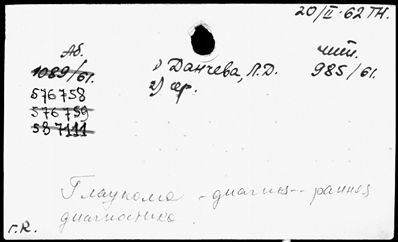 20/II-62 ТН.
Аб. 1) Данчева, Л.Д. чит.
1089/61. 2) ср. 985/61.
576758
576759
587111
Глаукома - диагноз - ранняя
диагностика
г.R.